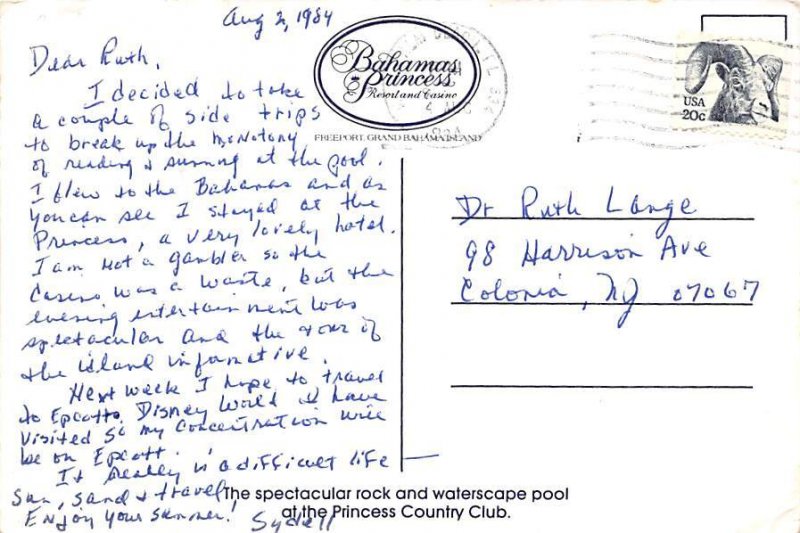 Aug 2, 1984
Dear Ruth,
I decided to take
a couple of side trips
to break up the monotony
of reading & sunning at the pool.
I flew to the Bahamas and as
you can see I stayed at the
Princess, a very lovely hotel.
I am not a gambler so the
Casino was a waste, but the
evening entertainment was
spectacular and the tour of
the island informative.
Next week I hope to travel
to Epcott. Disney World I have
visited so my concentration will
be on Epcott.
It really is a difficult life
Sun, sand & travel
Enjoy your summer!
Sydell
Bahamas
Princess
Resort and Casino
FREEPORT, GRAND BAHAMA ISLAND
USA
20c
Dr Ruth Lange
98 Harrison Ave
Colonia, NJ 07067
The spectacular rock and waterscape pool
at the Princess Country Club.